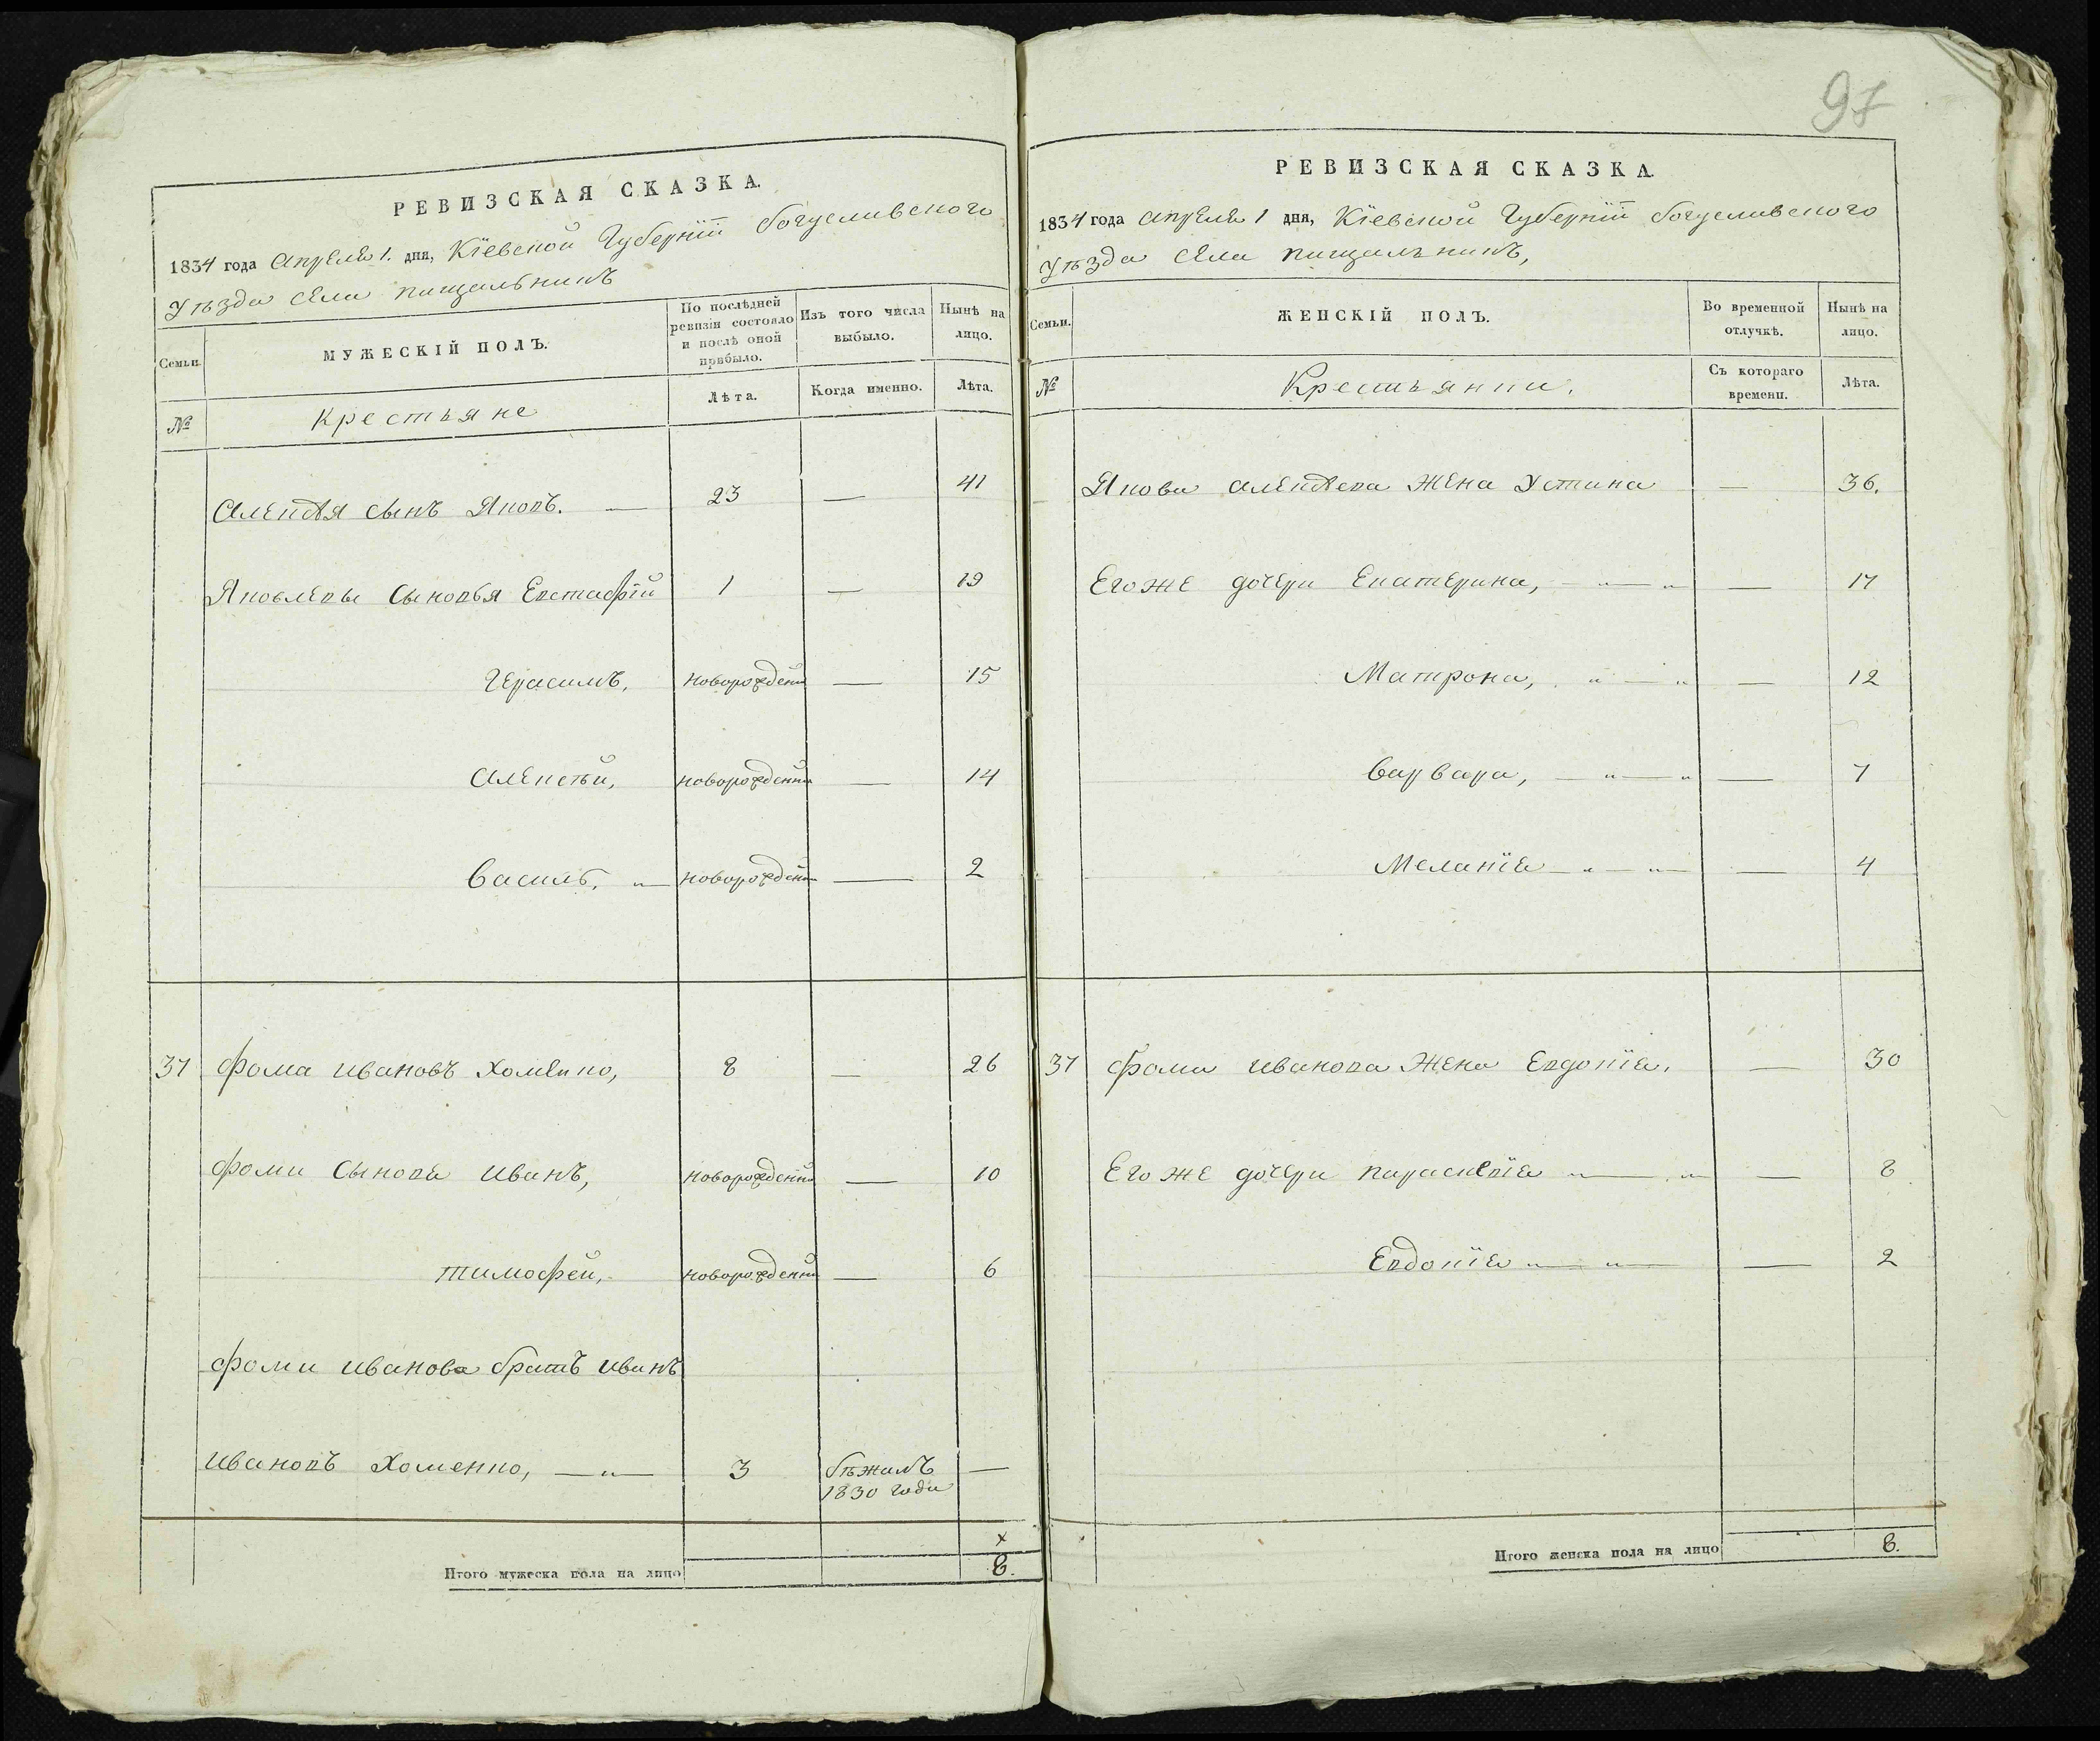 97
РЕВИЗСКАЯ СКАЗКА.
1834 года Апреля 1. дня, Кіевской Губерніи Богуславского
Уѣзда села Пищальникъ
Семьи.
МУЖЕСКІЙ ПОЛЪ.
По послѣдней ревизіи состояло и послѣ оной прибыло.
Изъ того числа выбыло.
Нынѣ на лицо.
№
Крестьяне
Лѣта.
Когда именно.
Лѣта.
Алексѣя сынъ Яковъ. — 23 — 41
Яковлевы сыновья Евстафій 1 — 19
Герасимъ, новорожден — 15
Алексѣй, новорожденн — 14
Василь, новорожден — 2
37 Фома Ивановъ Хоменко, 8 — 26
Фоми Сыновя Иванъ, новорожденн — 10
Тимофей, новорожденн — 6
Фоми Иванова братъ Иванъ
Ивановъ Хоменко, —„— 3 бѣжалъ —
1830 года
х
Итого мужеска пола на лицо 8.
РЕВИЗСКАЯ СКАЗКА.
1834 года Апреля 1 дня, Кіевской Губерніи Богуславского
Уѣзда села Пищальникъ,
Семьи.
ЖЕНСКІЙ ПОЛЪ.
Во временной отлучкѣ.
Нынѣ на лицо.
№
Крестьянки.
Съ котораго времени.
Лѣта.
Якова Алексѣева Жена Устина — 36.
Его же дочери Екатерина, —„—„ — 17
Матрона, „—„ — 12
Варвара, —„—„ — 7
Меланія —„—„— — 4
37 Фоми Иванова Жена Евдокія. — 30
Его же дочери Параскевія „—„— — 8
Евдокія „—„— — 2
Итого женска пола на лицо 8.